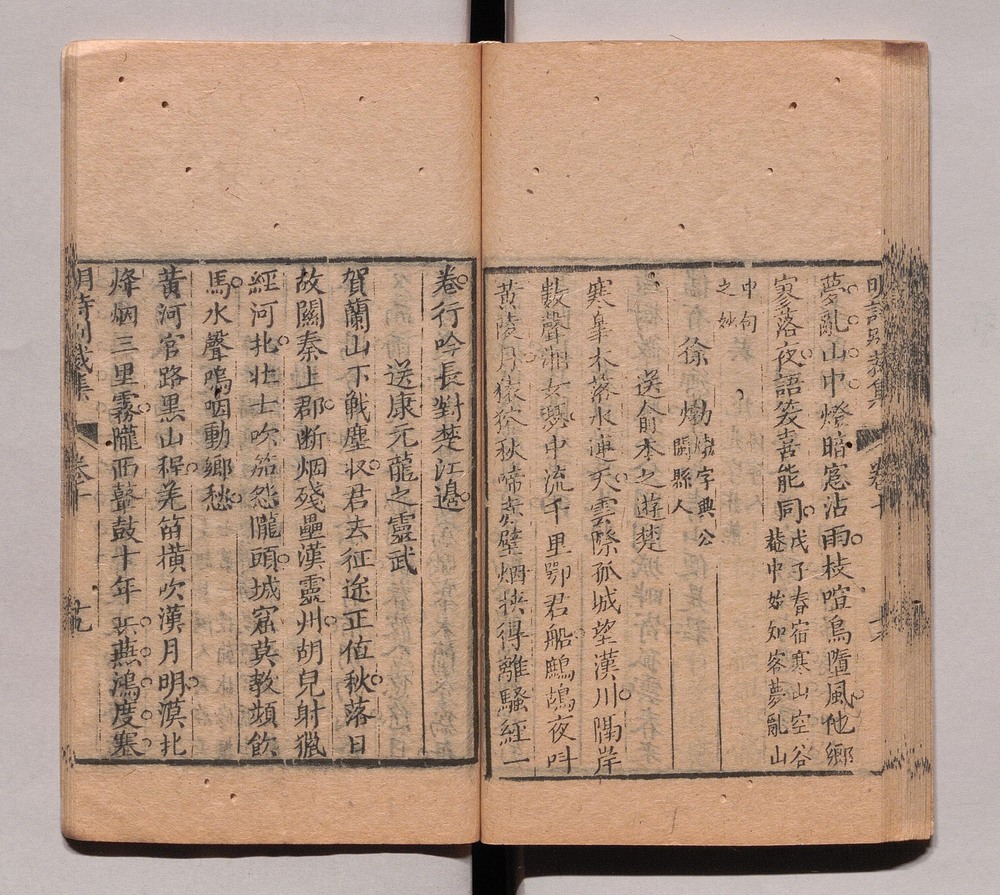 明詩別裁集 卷十
夢亂山中燈暗窻沾雨枝喧鳥墮風他鄉
寥落夜語笑喜能同戊子春宿寒山空谷
菴中始知客夢亂山
中句
之妙
徐𤊹 𤊹字興公
閩縣人
送俞本之遊楚
寒皐木落水連天雲際孤城望漢川隔岸
數聲湘女瑟中流千里鄂君船鷓鴣夜叫
黃陵月猿狖秋啼赤壁烟挾得離騷經一
卷行吟長對楚江邊
送康元龍之靈武
賀蘭山下戰塵收君去征途正值秋落日
故關秦上郡斷烟殘壘漢靈州胡兒射獵
經河北壯士吹笳怨隴頭城窟莫教頻飲
馬水聲嗚咽動鄉愁
黃河官路黑山程羌笛橫吹漢月明漠北
烽烟三里霧隴西鼙鼓十年兵燕鴻度塞
明詩別裁集 卷十 十九